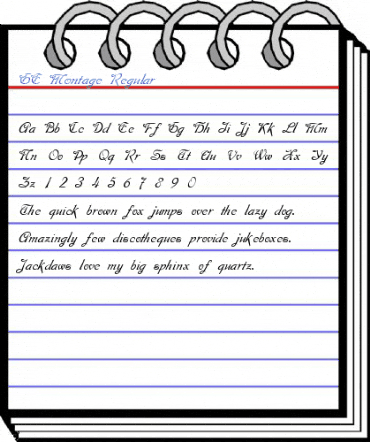 SE Montage Regular
Aa Bb Cc Dd Ee Ff Gg Hh Ii Jj Kk Ll Mm
Nn Oo Pp Qq Rr Ss Tt Uu Vv Ww Xx Yy
Zz 1 2 3 4 5 6 7 8 9 0
The quick brown fox jumps over the lazy dog.
Amazingly few discotheques provide jukeboxes.
Jackdaws love my big sphinx of quartz.